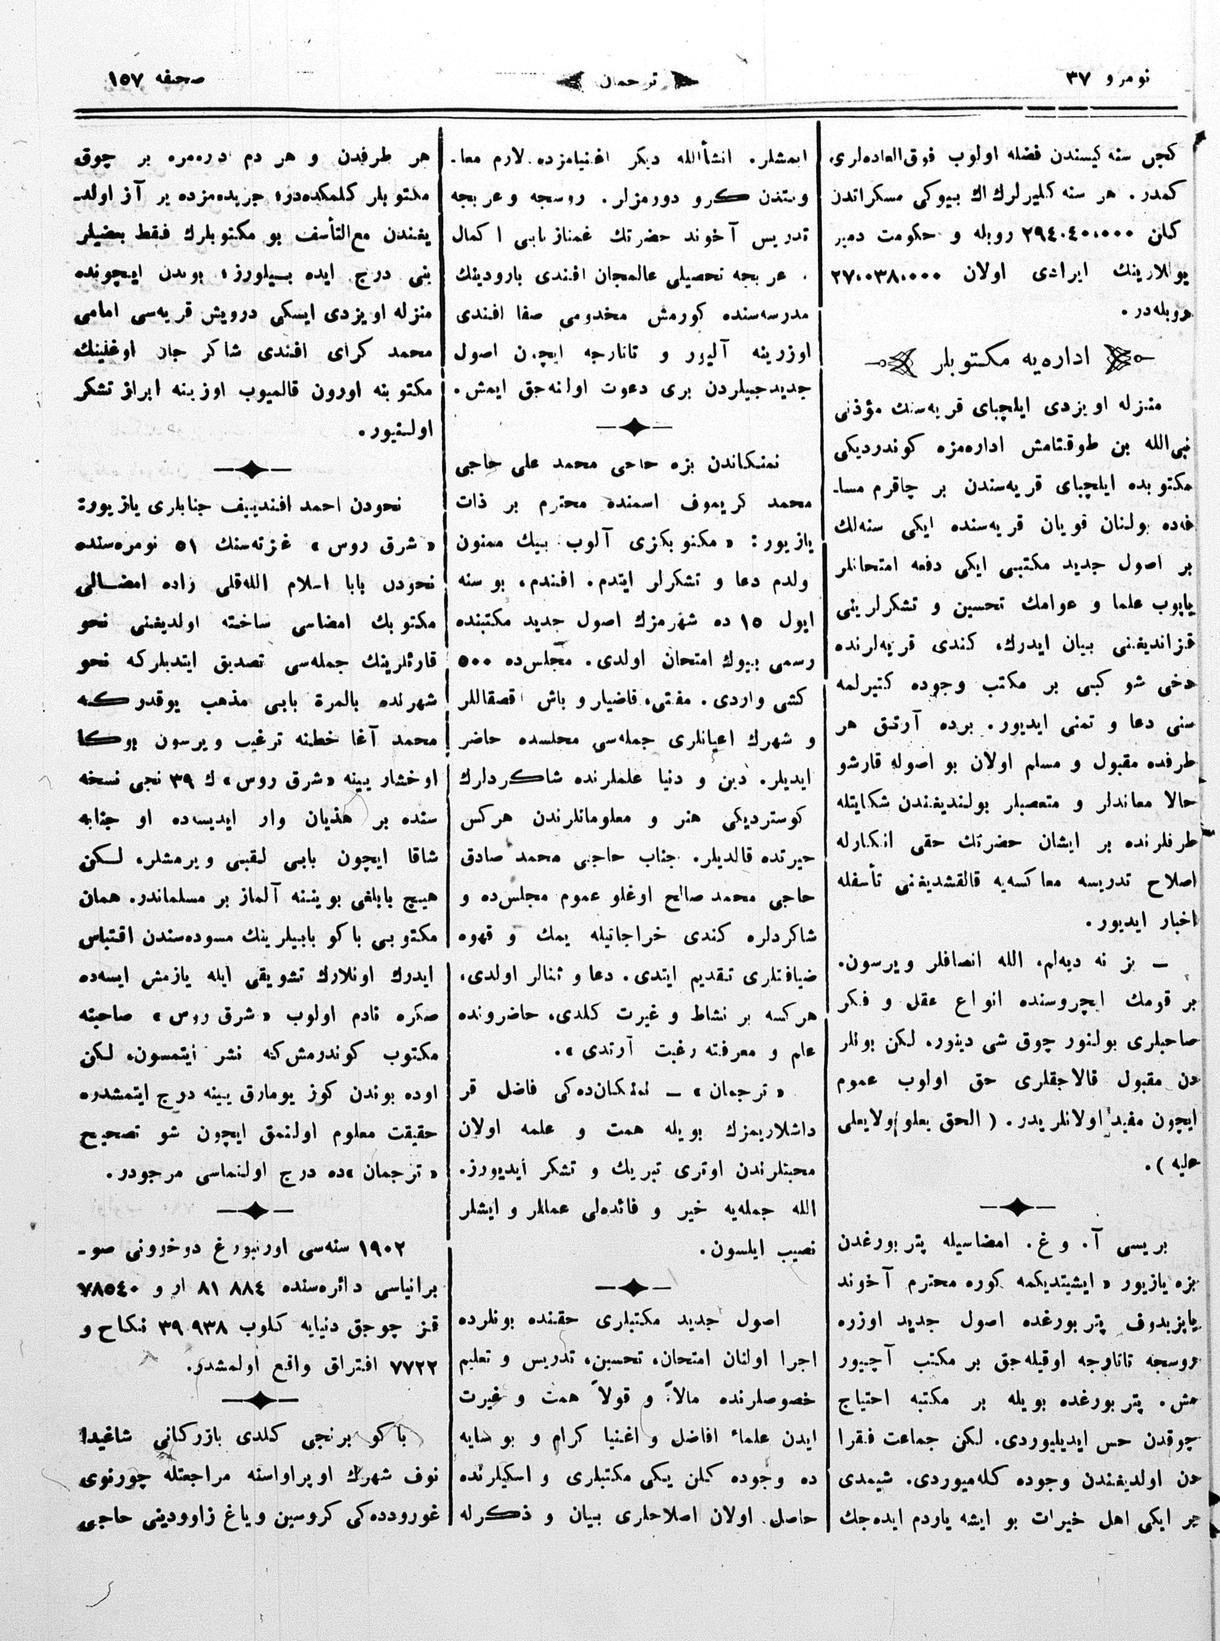 نومرو ٣٧
ترجمان
صحیفه ١٥٧
كچن سنه كیسندن فضله اولوب فوق‌العاده‌لری
كمدر. هر سنه كلیرلرك اڭ بیوكی مسكراتدن
كلن ٢٩٤٠٤٠٠٠٠ روبله و حكومت دمیر
یوللارینك ایرادی اولان ٢٧٠٠٣٨٠٠٠٠
روبله‌در.
اداره‌یه مكتوبلر
منزله اویزدی ایلچبای قریه‌سنك مؤذنی
نبی‌الله بن طوقتامش اداره‌مزه كوندردیكی
مكتوبده ایلچبای قریه‌سندن بر چاقرم مسا-
فه‌ده بولنان قویان قریه‌سنده ایكی سنه‌لك
بر اصول جدید مكتبی ایكی دفعه امتحانلر
یاپوب علما و عوامك تحسین و تشكرلرینی
قزاندیغنی بیان ایدرك، كندی قریه‌لرنده
دخی شو كبی بر مكتب وجوده كتیرلمه
سنی دعا و تمنی ایدیور. برده آرتق هر
طرفده مقبول و مسلم اولان بو اصوله قارشو
حالا معاندلر و متعصبلر بولندیغندن شكایتله
طرفلرنده بر ایشان حضرتك حقی انكارله
اصلاح تدریسه معاكسه‌یه قالقشدیغنی تأسفله
اخبار ایدیور.
— بز نه دیه‌لم، الله انصافلر ویرسون.
بر قومك ایچروسنده انواع عقل و فكر
صاحبلری بولنور چوق شی دینور. لكن بونلر
دن مقبول قالاجقلری حق اولوب عموم
ایچون مفید اولانلریدر. ( الحق یعلو ولایعلی
علیه ).
بریسی آ. و غ. امضاسیله پتربورغدن
بزه یازیور « ایشیتدیكمه كوره محترم آخوند
بایزیدوف پتربورغده اصول جدید اوزره
روسجه تاتارجه اوقیله‌جق بر مكتب آچیور
مش. پتربورغده بویله بر مكتبه احتیاج
چوقدن حس ایدیلیوردی. لكن جماعت فقرا
دن اولدیغندن وجوده كله‌میوردی. شیمدی
بر ایكی اهل خیرات بو ایشه یاردم ایده‌جك
ایمشلر. انشأالله دیكر اغنیامزده لازم معا-
ونتدن كرو دورمزلر. روسجه و عربجه
تدریس آخوند حضرتك اكمال
. عربجه تحصیلی عالمجان افندی بارودینك
مدرسه‌سنده كورمش مخدومی صفا افندی
اوزرینه آلیور و تاتارجه ایچون اصول
جدیدجیلردن بری دعوت اولنه‌جق ایمش.
نمنكاندن بزه حاجی محمد علی حاجی
محمد كریموف اسمنده محترم بر ذات
یازیور: « مكتوبكزی آلوب بیك ممنون
ولدم دعا و تشكرلر ایتدم. افندم، بو سنه
ایول ١٥ ده شهرمزك اصول جدید مكتبنده
رسمی بیوك امتحان اولدی. مجلس‌ده ٥٠٠
كشی واردی. مفتی، قاضیلر و باش اقصقاللر
و شهرك اعیانلری جمله‌سی مجلسده حاضر
ایدیلر. دین و دنیا علملرنده شاكردلرك
كوستردیكی هنر و معلوماتلرندن هركس
حیرتده قالدیلر. جناب حاجی محمد صادق
حاجی محمد صالح اوغلو عموم مجلس‌ده و
شاكردلره كندی خراجاتیله یمك و قهوه
ضیافتلری تقدیم ایتدی. دعا و ثنالر اولدی،
هركسه بر نشاط و غیرت كلدی، حاضرونده
علم و معرفته رغبت آرتدی ».
« ترجمان » — نمنكان‌ده‌كی فاضل قر
داشلاریمزك بویله همت و علمه اولان
محبتلرندن اوتری تبریك و تشكر ایدیورز.
الله جمله‌یه خیر و فائده‌لی عمللر و ایشلر
نصیب ایلسون.
اصول جدید مكتبلری حقنده بونلرده
اجرا اولنان امتحان، تحسین، تدریس و تعلیم
خصوصلرنده مالاً و قولاً همت و غیرت
ایدن علماء افاضل و اغنیا كرام و بو سایه
ده وجوده كلن یكی مكتبلری و اسكیلرنده
حاصل اولان اصلاحلری بیان و ذكرله
هر طرفدن و هر دم اداره‌مزه بر چوق
مكتوبلر كلمكده‌در؛ جریده‌مزده یر آز اولد-
یغندن مع‌التأسف بو مكتوبلرك فقط بعضیلر
ینی درج ایده بیلورز؛ بوندن ایچونده
منزله اویزدی ایسكی درویش قریه‌سی امامی
محمد كرای افندی شاكر جان اوغلینك
مكتوبنه اورون قالمیوب اوزینه ابراز تشكر
اولنیور.
نخودن احمد افندییف جنابلری یازیور:
« شرق روس » غزته‌سنك ٥١ نومره‌سنده
نخودن بابا اسلام الله‌قلی زاده امضالی
مكتوبك امضاسی ساخته اولدیغنی نخو
قارئلرینك جمله‌سی تصدیق ایتدیلركه نخو
شهرنده بالمرة بابی مذهب یوقدوركه
محمد آغا خطینه ترغیب ویرسون بوكا
اوخشار یینه « شرق روس » ك ٣٩ نجی نسخه
سنده بر هذیان وار ایدیسه‌ده او جنابه
شاقا ایچون بابی لقبی ویرمشلر، لكن
هیچ بابلغی بویننه آلماز بر مسلماندر. همان
مكتوبی باكو بابیلرینك مسوده‌سندن اقتباس
ایدرك اونلارك تشویقی ایله یازمش ایسه‌ده
صكره نادم اولوب « شرق روس » صاحبنه
مكتوب كوندرمش‌كه نشر ایتمسون، لكن
اوده بوندن كوز یومارق یینه درج ایتمشدره
حقیقت معلوم اولنمق ایچون شو تصحیح
« ترجمان »ده درج اولنماسی مرجودر.
١٩٠٢ سنه‌سی اورنبورغ دوخوونی صو-
برانیاسی دائره‌سنده ٨١ ٨٨٤ ار و ٧٨٥٤٠
قز چوجق دنیایه كلوب ٣٩ ٩٣٨ نكاح و
٧٧٢٢ افتراق واقع اولمشدر.
باكو برنجی كلدی بازركانی شاغیدا
نوف شهرك اوپراواسنه مراجعتله چورنوی
غورودده‌كی كروسین و یاغ زاوودینی حاجی